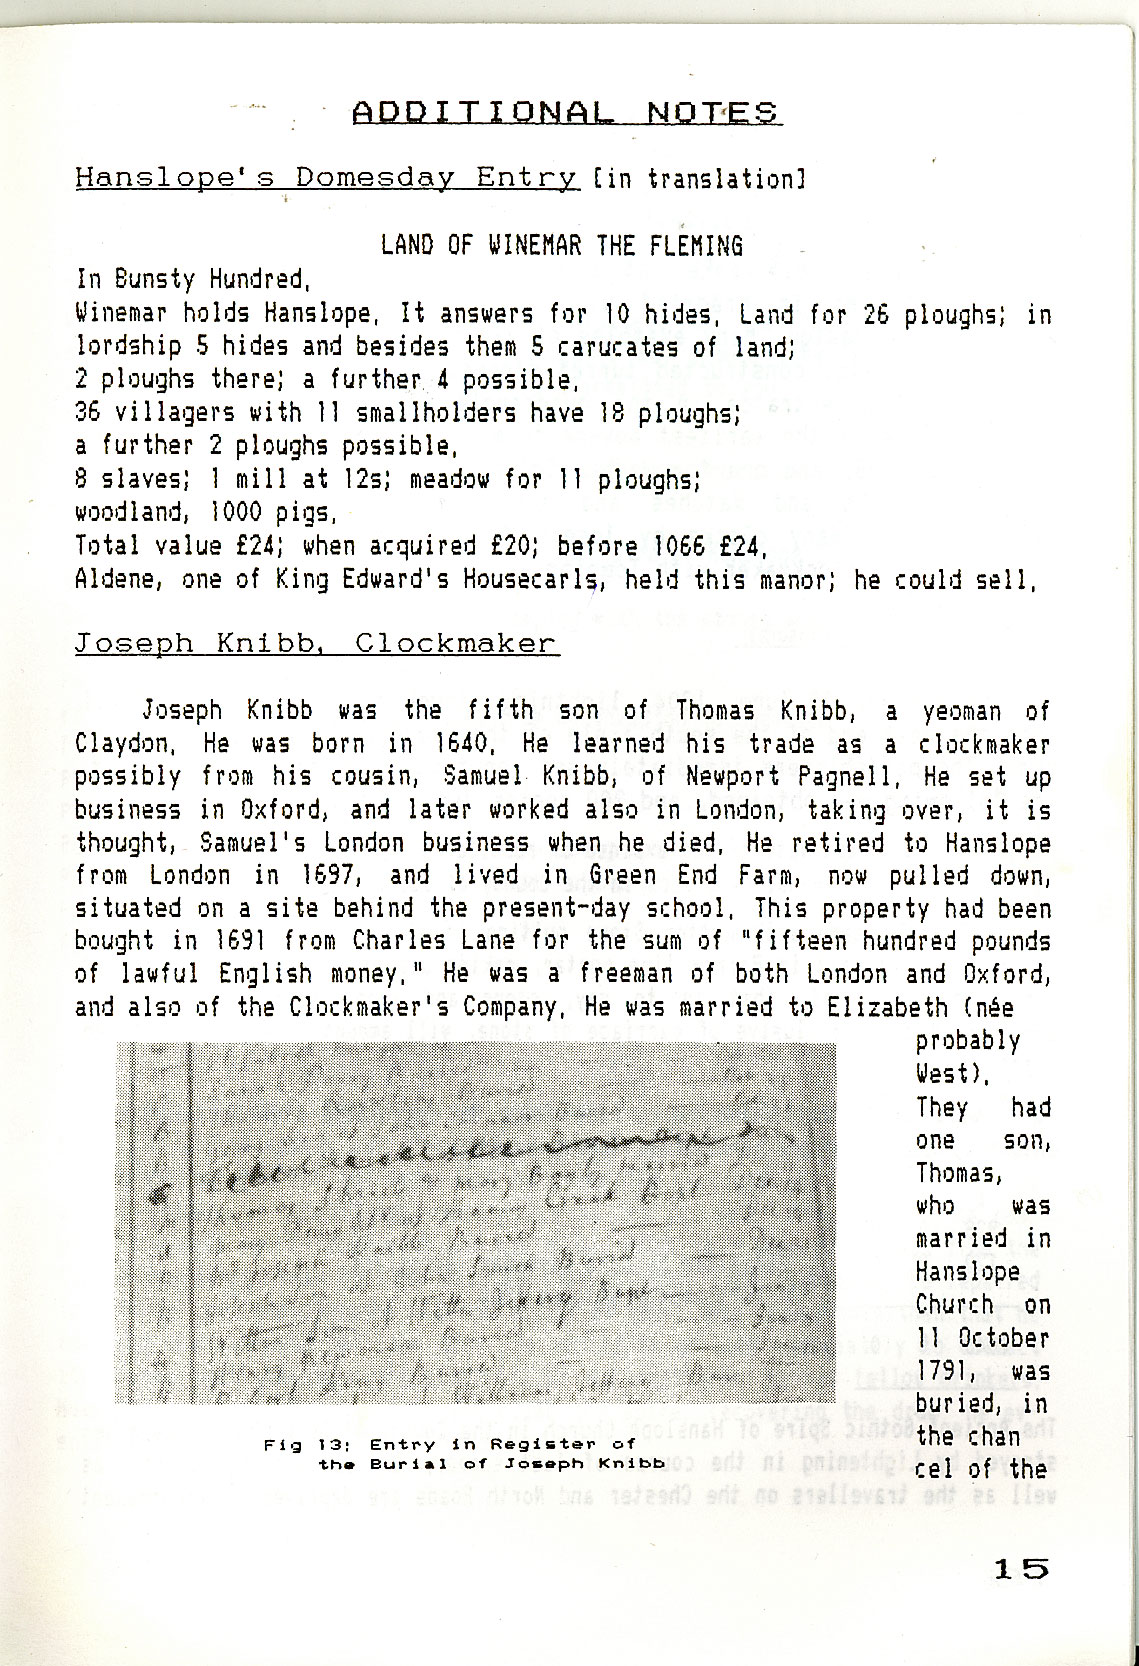 ADDITIONAL NOTES
Hanslope's Domesday Entry [in translation]
LAND OF WINEMAR THE FLEMING
In Bunsty Hundred.
Winemar holds Hanslope. It answers for 10 hides. Land for 26 ploughs; in
lordship 5 hides and besides them 5 carucates of land;
2 ploughs there; a further 4 possible.
36 villagers with 11 smallholders have 18 ploughs;
a further 2 ploughs possible.
8 slaves; 1 mill at 12s; meadow for 11 ploughs;
woodland, 1000 pigs.
Total value £24; when acquired £20; before 1066 £24.
Aldene, one of King Edward's Housecarls, held this manor; he could sell.
Joseph Knibb, Clockmaker
Joseph Knibb was the fifth son of Thomas Knibb, a yeoman of
Claydon. He was born in 1640. He learned his trade as a clockmaker
possibly from his cousin, Samuel Knibb, of Newport Pagnell. He set up
business in Oxford, and later worked also in London, taking over, it is
thought, Samuel's London business when he died. He retired to Hanslope
from London in 1697, and lived in Green End Farm, now pulled down,
situated on a site behind the present-day school. This property had been
bought in 1691 from Charles Lane for the sum of "fifteen hundred pounds
of lawful English money." He was a freeman of both London and Oxford,
and also of the Clockmaker's Company. He was married to Elizabeth (née
probably
West).
They had
one son,
Thomas,
who was
married in
Hanslope
Church on
11 October
1791, was
buried, in
the chan
cel of the
Fig 13: Entry in Register of
the Burial of Joseph Knibb
15